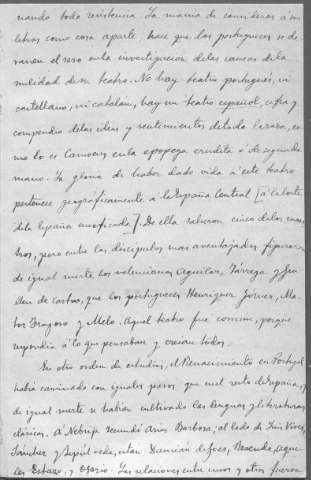 nando toda resistencia. La manía de considerar á sus
letras como cosa aparte hace que los portugueses se de-
vanen el seso en la investigacion de las causas de la
nulidad de su teatro. No hay teatro portugués, ni
castellano, ni catalán, hay un teatro español, cifra y
compendio de las ideas y sentimientos de toda la raza, co-
mo lo es Camoens en la epopeya erudita ó de segunda
mano. La gloria de haber dado vida á este teatro
pertenece geográficamente á la España Central [á la Corte
de la España unificada]. De ella salieron cinco de los maes-
tros, pero entre los discípulos mas aventajados figuraron
de igual suerte los valencianos Aguilar, Tárrega y Gui-
llen de Castro, que los portugueses Henriquez Gomez, Ma-
tos Fragoso y Melo. Aquel teatro fué comun, porque
respondia á lo que pensaban y creían todos.
En otro orden de estudios, el Renacimiento en Portugal
habia caminado con iguales pasos que en el resto de España, y
de igual suerte se habian cultivado las lenguas y literaturas
clásicas. A Nebrija secundó Arias Barbosa, al lado de Luis Vives,
Sánchez y Sepúlveda, están Damián de Goes, Resende, Aqui-
les Estazo, y Osorio. Las relaciones entre unos y otros fueron